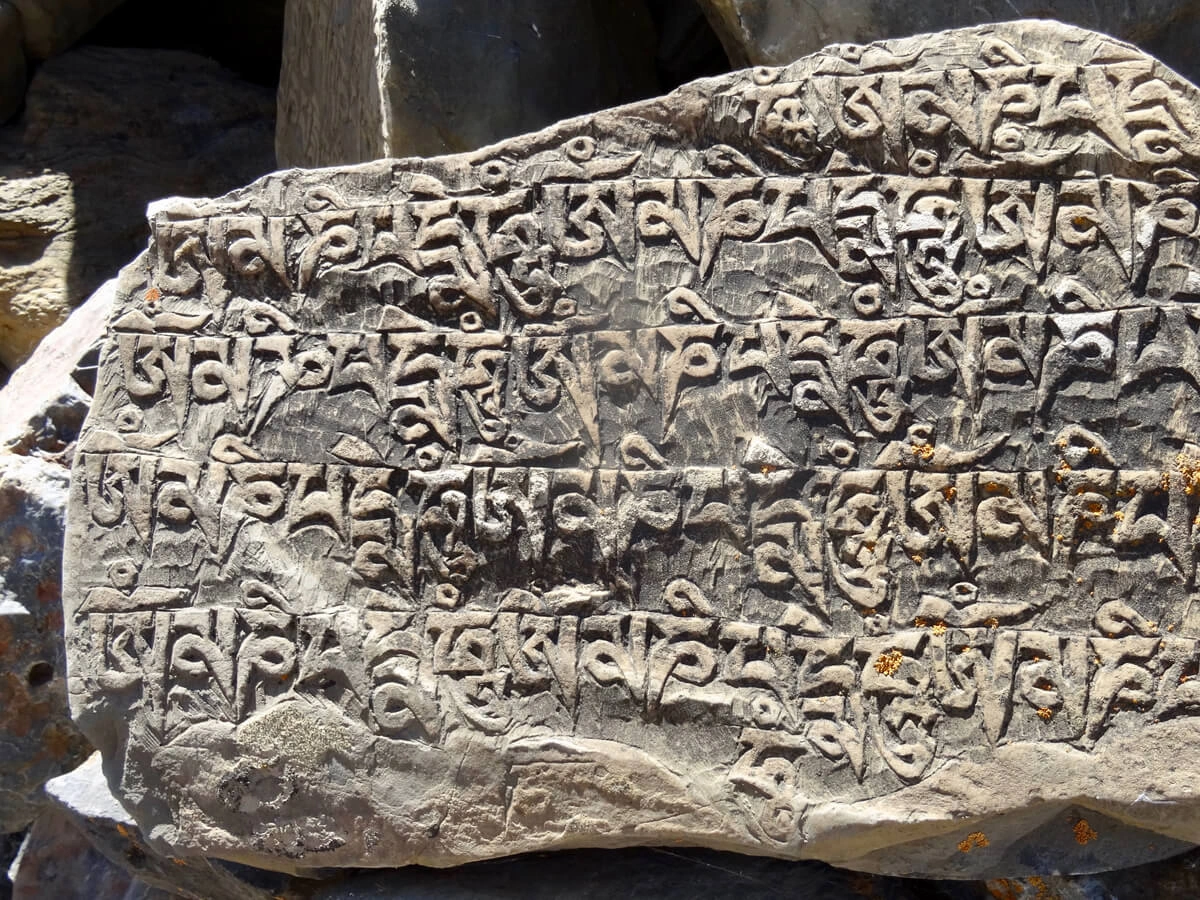 ཧཱུྃ ཨོཾ མ ཎི པ དྨེ
ཨོཾ མ ཎི པ དྨེ ཧཱུྃ ཨོཾ མ ཎི པ དྨེ ཧཱུྃ ཨོཾ མ ཎི
ཨོཾ མ ཎི པ དྨེ ཧཱུྃ ཨོཾ མ ཎི པ དྨེ ཧཱུྃ ཨོཾ མ ཎི པ
ཨོཾ མ ཎི པ དྨེ ཧཱུྃ ཨོཾ མ ཎི པ དྨེ ཧཱུྃ ཨོཾ མ ཎི པ
ཨོཾ མ ཎི པ དྨེ ཧཱུྃ ཨོཾ མ ཎི པ དྨེ ཧཱུྃ ཨོཾ མ ཎི